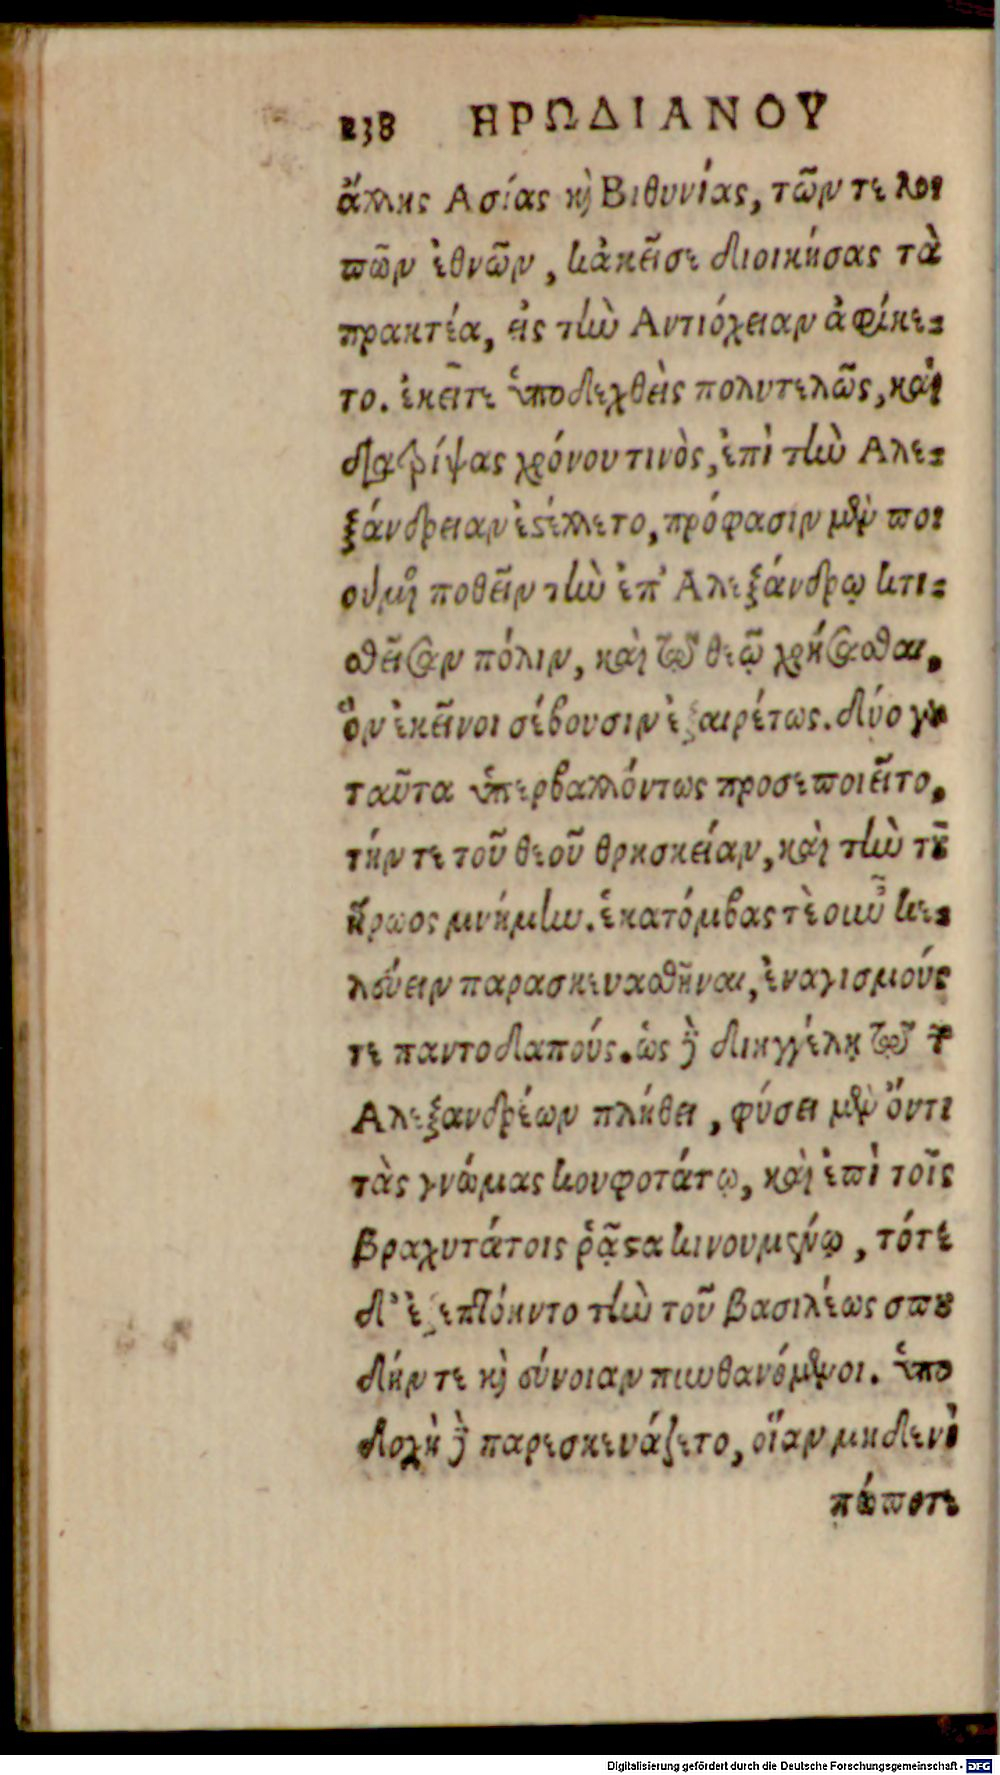 238 ΗΡΩΔΙΑΝΟΥ
ἄλλης Ασίας κὶ Βιθυνίας, τῶν τε λοι
πῶν ἐθνῶν, κἀκεῖσε διοικήσας τὰ
πρακτέα, εἰς τὴν Αντιόχειαν ἀφίκε-
το. ἐκεῖτε ὑποδεχθεὶς πολυτελῶς, καὶ
διατρίψας χρόνου τινὸς, ἐπὶ τὴν Αλε-
ξάνδρειαν ἐστέλλετο, πρόφασιν μὲν ποι
ούμενος ποθεῖν τὴν ἐπ' Αλεξάνδρῳ κτι-
σθεῖσαν πόλιν, καὶ τῷ θεῷ χρήσασθαι,
ὃν ἐκεῖνοι σέβουσιν ἐξαιρέτως. δύο γὰρ
ταῦτα ὑπερβαλλόντως προσεποιεῖτο,
τήν τε τοῦ θεοῦ θρησκείαν, καὶ τὴν τοῦ
ἥρωος μνήμην. ἑκατόμβας τὲ οὖν κε-
λεύειν παρασκευασθῆναι, ἐναγισμούς
τε παντοδαπούς. ὡς δὲ διηγγέλη τῷ τῶν
Αλεξανδρέων πλήθει, φύσει μὲν ὄντι
τὰς γνώμας κουφοτάτῳ, καὶ ἐπὶ τοῖς
βραχυτάτοις ῥᾷστα κινουμένῳ, τότε
δ' ἐξεπτόηντο τὴν τοῦ βασιλέως σπου
δήν τε κὶ εὔνοιαν πυνθανόμενοι. ὑπο
δοχὴ δὲ παρεσκευάζετο, οἵαν μηδενὶ
πώποτε
Digitalisierung gefördert durch die Deutsche Forschungsgemeinschaft - DFG